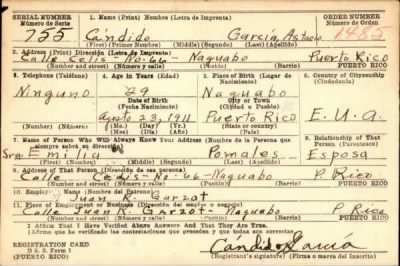 SERIAL NUMBER 1. Name (Print) (Nombre) (Letra de Imprenta) ORDER NUMBER
Número de Serie Número de Orden
755 Cándido García, 1485
(First) (Primer Nombre) (Middle) (Segundo) (Last) (Apellido)
2. Address (Print) Dirección (Letra de Imprenta)
Calle Celis-No-66- Naguabo Puerto Rico
(Number) (Número) (Street) (Calle) (Town) (Ciudad o Pueblo) PUERTO RICO
3. Telephone (Teléfono) 4. Age in Years (Edad) 5. Place of Birth (Lugar de Nacimiento) 6. Country of Citizenship (Ciudadanía)
Ninguno 29 Naguabo
Date of Birth (Fecha Nacimiento) City or Town (Ciudad o Pueblo)
Agosto 23, 1911 Puerto Rico E.U.A.
(Number) (Número) (Mo.) (Mes) (Day) (Día) (Yr.) (Año) (State or country) (Estado o país)
7. Name of Person Who Will Always Know Your Address (Nombre de la Persona que siempre sabrá su dirección) 8. Relationship of That Person
Sra. Emilia Pomales Esposa
(First) (Primer Nombre) (Middle) (Segundo) (Last) (Apellido)
9. Address of That Person (Dirección de esa persona)
Calle Celis-No-66-Naguabo P. Rico
(Number) (Número) (Street) (Calle) (Town) (Ciudad o Pueblo) PUERTO RICO
10. Employer's Name (Nombre del Patrono)
Juan R. Garzot
11. Place of Employment or Business (Dirección del empleo o negocio)
Calle Juan R. Garzot Naguabo P. Rico
(Number) (Número) (Street) (Calle) (Town) (Ciudad o Pueblo) PUERTO RICO
I Affirm That I Have Verified Above Answers And That They Are True.
(Afirmo que he verificado las contestaciones que preceden y que todas son correctas.)
REGISTRATION CARD
D. S. S. Form 1 Candido García
(Registrant's signature) (Firma o marca del Inscrito)